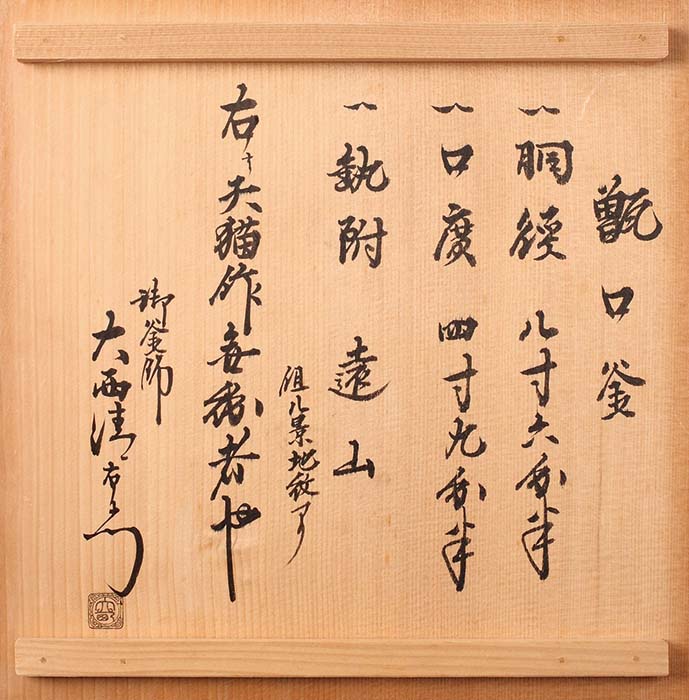 甑口釜
一 胴徑 八寸六分半
一 口度 四寸九分半
一 執附 遠山
但八景地紋アリ
右ハ天猫作無紛者也
御釜師
大西清右衛門